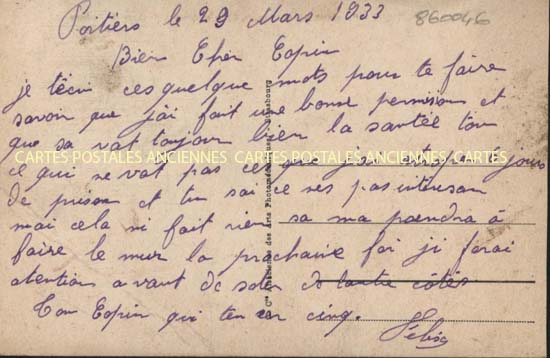 Poitiers le 29 Mars 1933
860046
Bien Cher Copin
je t'écri ces quelque mots pour te faire
savoir que j'ai fait une bonne permision et
que sa vat toujour bien la santée tou
ce qui ne vat pas cet que j'ai atrapé 8 jours
CARTES POSTALES ANCIENNES CARTES POSTALES ANCIENNES CARTES POSTALES ANCIENNES
de prison et tu sai ce nes pas interesan
mai cela ni fait rien sa ma prendra à
faire le mur la prochaine foi ji ferai
atention avant de soter de lautre côtés
Ton Copin qui ten ser cinq.